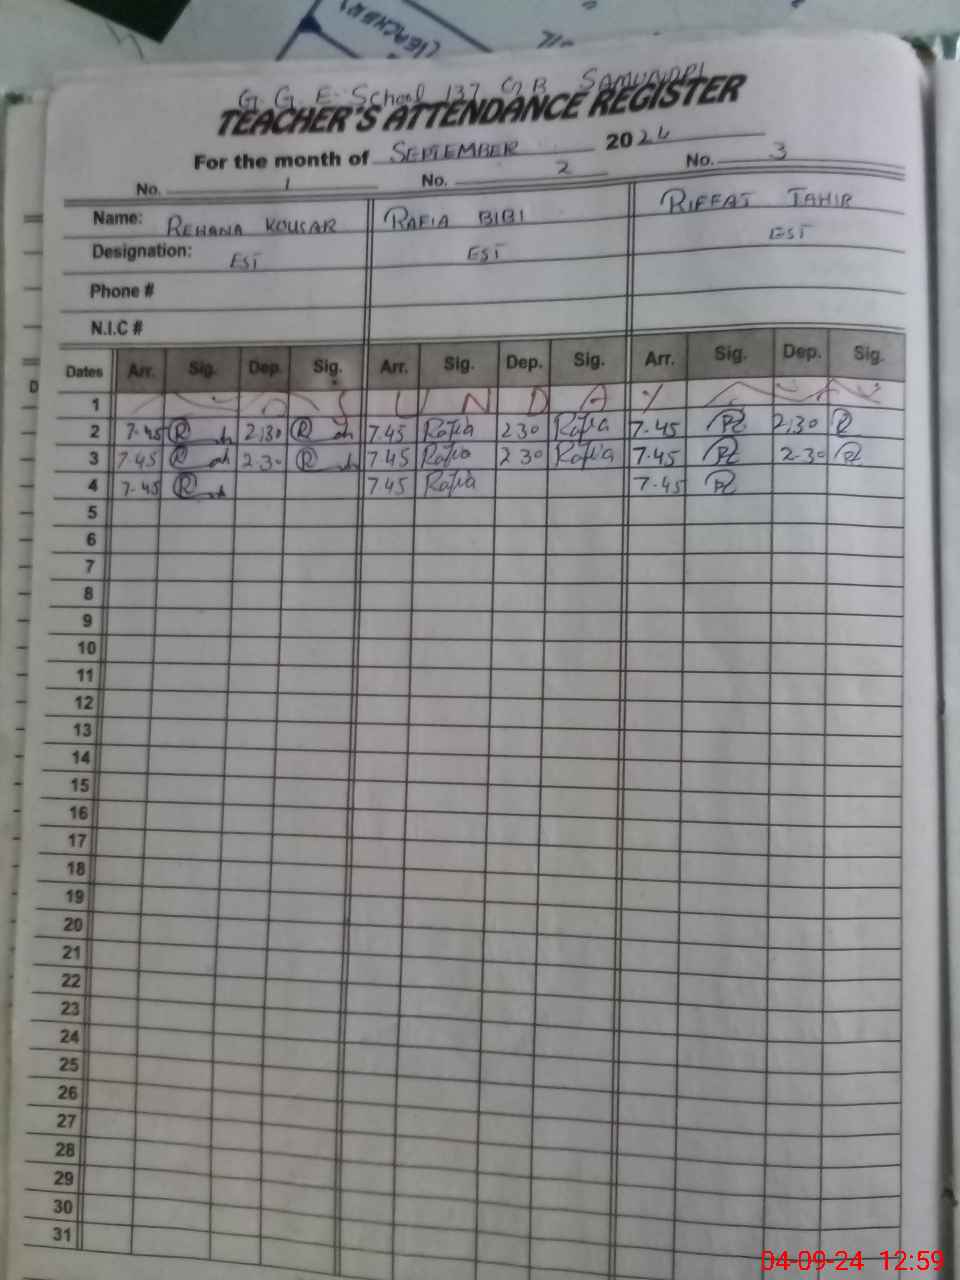 (TEACHER)
G. G. E. School 137 GB SAMUNDRI
TEACHER'S ATTENDANCE REGISTER
For the month of SEPTEMBER 2024
No. 1 No. 2 No. 3
Name: REHANA KOUSAR RAFIA BIBI RIFFAT TAHIR
Designation: EST EST EST
Phone #
N.I.C #
Dates Arr. Sig. Dep. Sig. Arr. Sig. Dep. Sig. Arr. Sig. Dep. Sig.
1 S U N D A Y
2 7.45 R 2:30 R 7.45 Rafia 2 30 Rafia 7.45 2:30
3 7.45 R 2.30 R 7.45 Rafia 2 30 Rafia 7.45 2.30
4 7.45 R 7.45 Rafia 7.45
5
6
7
8
9
10
11
12
13
14
15
16
17
18
19
20
21
22
23
24
25
26
27
28
29
30
31
04-09-24 12:59